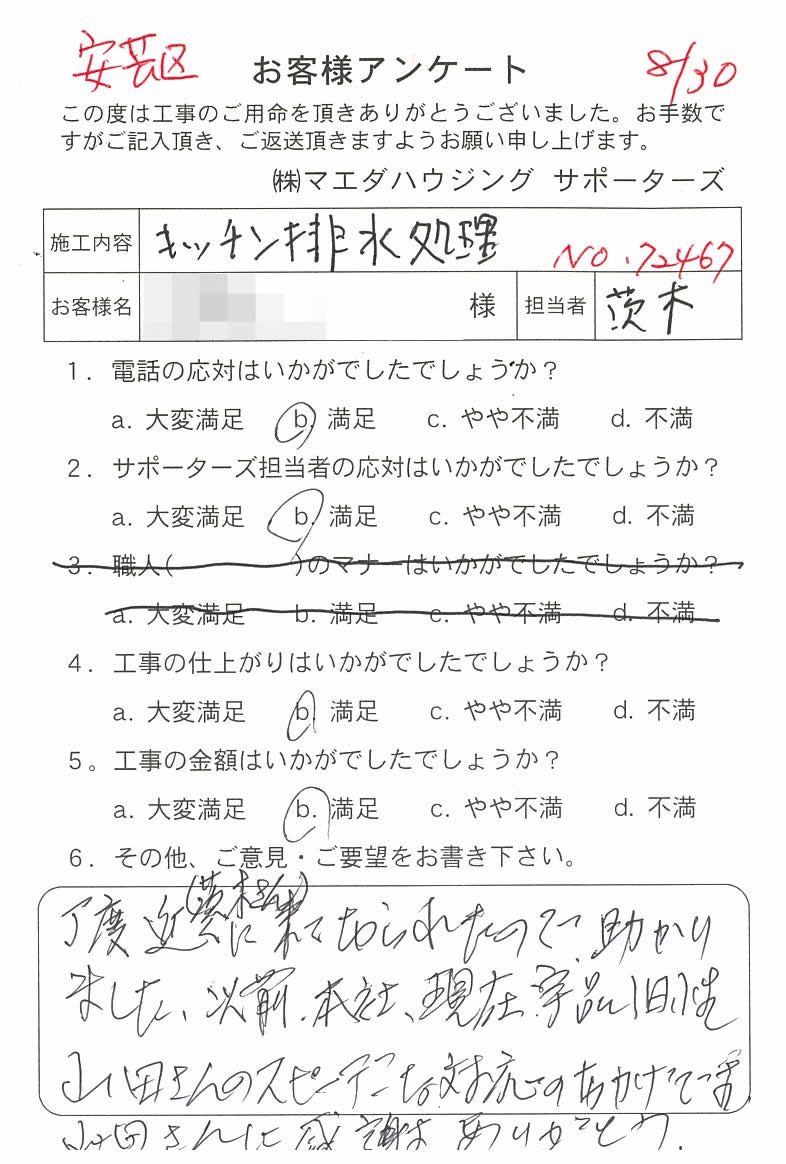 安芸区 お客様アンケート 8/30
この度は工事のご用命を頂きありがとうございました。お手数で
すがご記入頂き、ご返送頂きますようお願い申し上げます。
㈱マエダハウジング サポーターズ
施工内容 キッチン排水処理 NO.72467
お客様名 様 担当者 茨木
1. 電話の応対はいかがでしたでしょうか?
a. 大変満足 b. 満足 c. やや不満 d. 不満
2. サポーターズ担当者の応対はいかがでしたでしょうか?
a. 大変満足 b. 満足 c. やや不満 d. 不満
3. 職人( )のマナーはいかがでしたでしょうか?
a. 大変満足 b. 満足 c. やや不満 d. 不満
4. 工事の仕上がりはいかがでしたでしょうか?
a. 大変満足 b. 満足 c. やや不満 d. 不満
5。工事の金額はいかがでしたでしょうか?
a. 大変満足 b. 満足 c. やや不満 d. 不満
6. その他、ご意見・ご要望をお書き下さい。
(茨木さん)
丁度近くに来ておられたので、助かり
ました、以前、本社、現在、宇品
さんのスピーディーな対応のおかげで
さんに感謝 ありがとう.